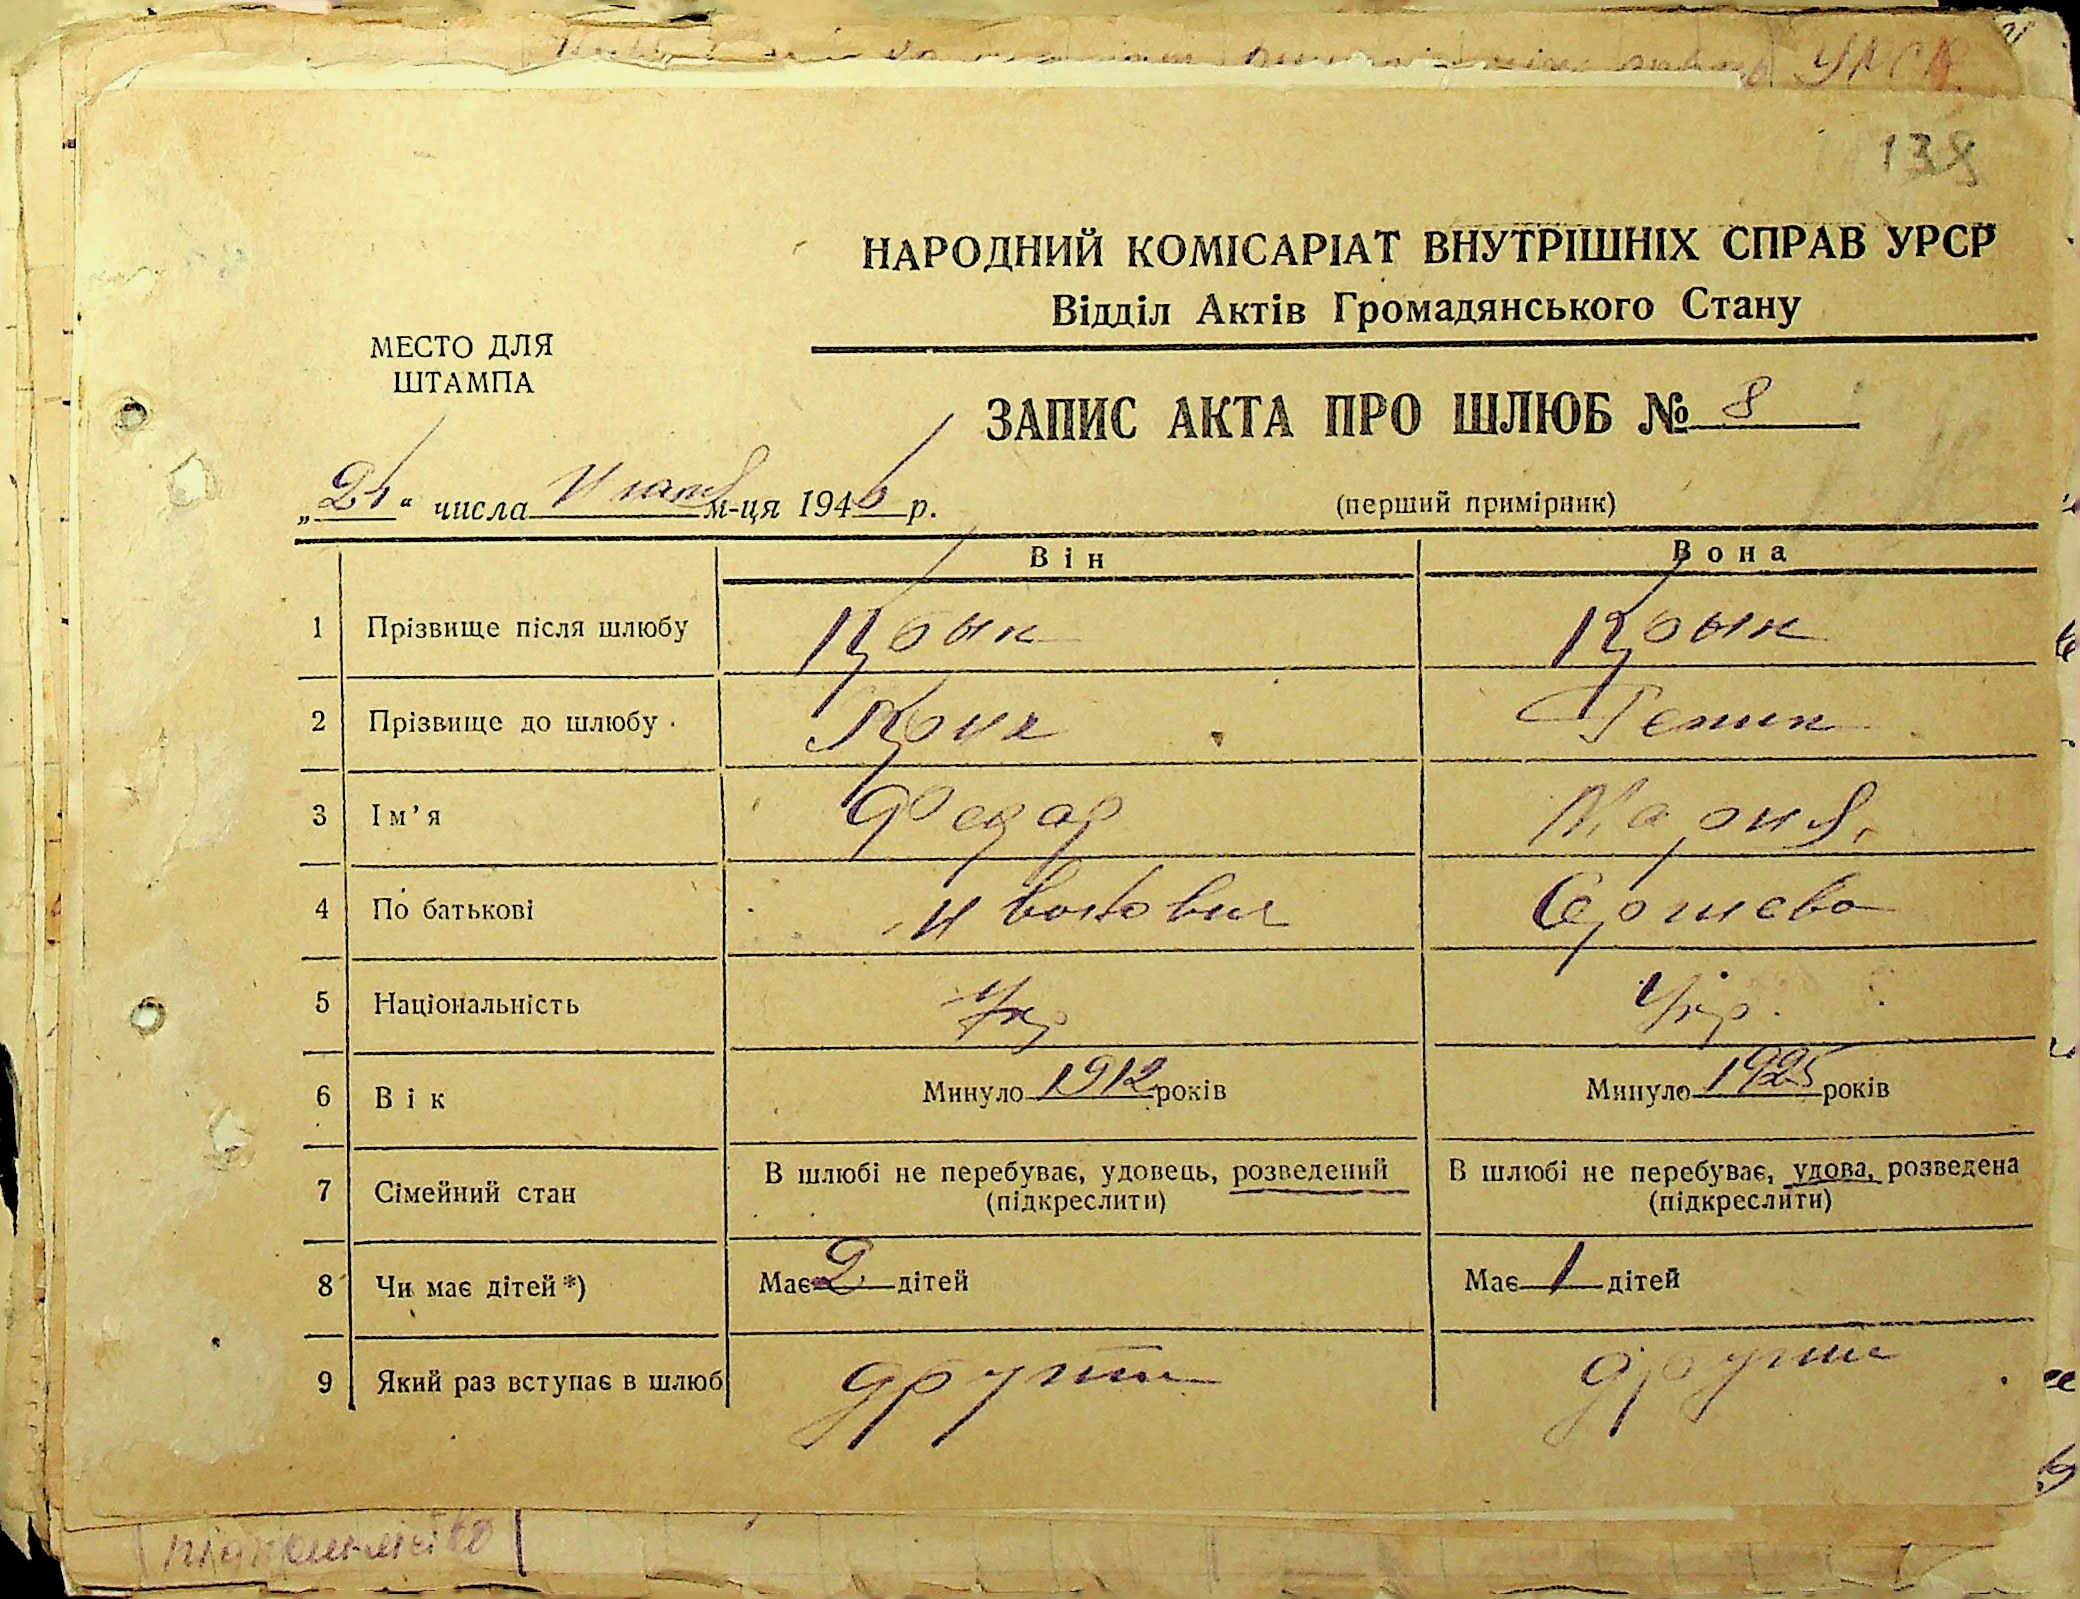 УРСР
138
НАРОДНИЙ КОМІСАРІАТ ВНУТРІШНІХ СПРАВ УРСР
Відділ Актів Громадянського Стану
МЕСТО ДЛЯ
ШТАМПА
ЗАПИС АКТА ПРО ШЛЮБ № 8
„24“ числа м-ця 1946 р.
(перший примірник)
Він Вона
1 Прізвище після шлюбу
2 Прізвище до шлюбу
3 Ім'я Федар Мария
4 По батькові Иванович
5 Національність Укр Укр.
6 Вік Минуло 1912 років Минуло 1925 років
7 Сімейний стан В шлюбі не перебуває, удовець, розведений В шлюбі не перебуває, удова, розведена
(підкреслити) (підкреслити)
8 Чи має дітей *) Має 2 дітей Має 1 дітей
9 Який раз вступає в шлюб